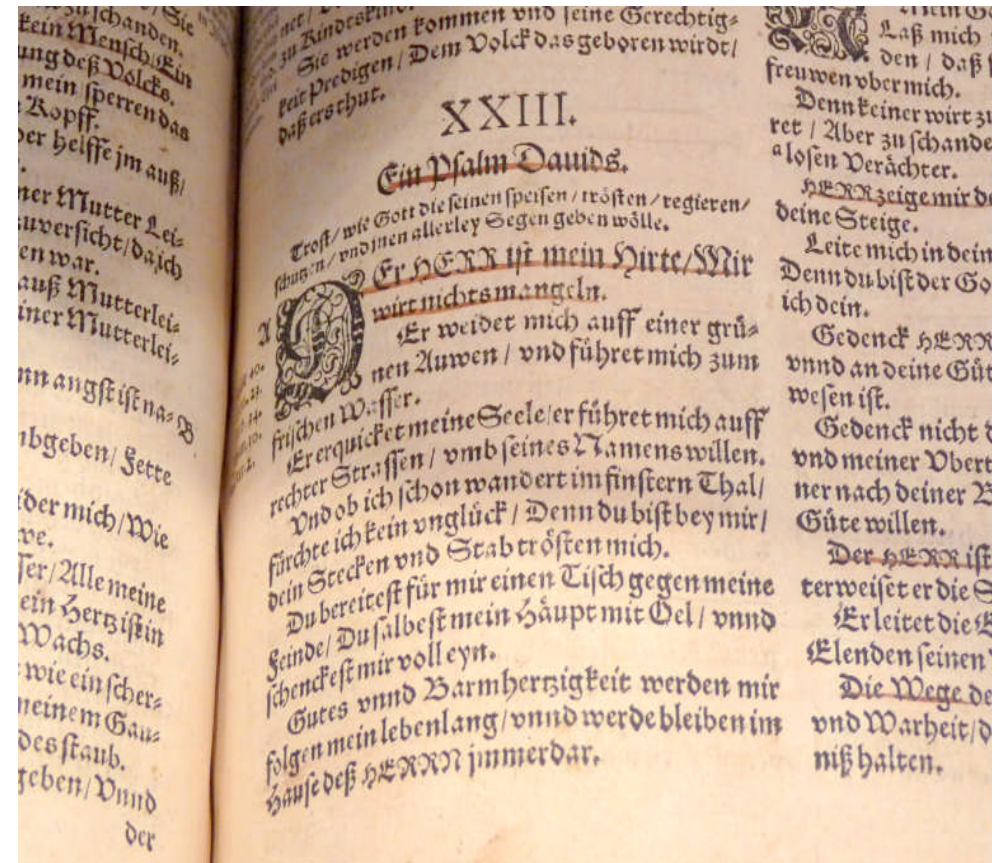 zu schanden.
kein Mensch/Ein
ung deß Volcks.
mein sperren das
Kopff.
der helffe jm auß/
ner Mutter Lei-
zuversicht/da ich
en war.
auß Mutterlei-
iner Mutterlei-
nn angst ist na-
mbgeben/Fette
der mich/Wie
we.
ser/Alle meine
ein Hertz ist in
Wachs.
wie ein scher-
meinem Gau-
des staub.
geben/Vnnd
der
zu Kindeskind
Sie werden kommen vnd seine Gerechtig-
keit Predigen/Dem Volck das geboren wirdt/
daß ers thut.
XXIII.
Ein Psalm Dauids.
Trost/wie Gott die seinen speisen/trösten/regieren/
schutzen/vnd jnen allerley Segen geben wölle.
DEr HERR ist mein Hirte/Mir
wirt nichts mangeln.
Er weidet mich auff einer grü-
nen Auwen/vnd führet mich zum
frischen Wasser.
Er erquicket meine Seele/er führet mich auff
rechter Strassen/vmb seines Namens willen.
Vnd ob ich schon wandert im finstern Thal/
fürchte ich kein vnglück/Denn du bist bey mir/
dein Stecken vnd Stab trösten mich.
Du bereitest für mir einen Tisch gegen meine
Feinde/Du salbest mein Häupt mit Oel/vnnd
schenckest mir voll eyn.
Gutes vnnd Barmhertzigkeit werden mir
folgen mein lebenlang/vnnd werde bleiben im
Hause deß HERRN jmmerdar.
A
B
Laß mich
den/daß
freuwen vber mich.
Denn keiner wirt zu
ret/Aber zu schande
a losen Verächter.
HERR zeige mir de
deine Steige.
Leite mich in dein
Denn du bist der Go
ich dein.
Gedenck HERR
vnnd an deine Güt
wesen ist.
Gedenck nicht d
vnd meiner Vbert
ner nach deiner B
Güte willen.
Der HERR ist
terweiset er die S
Er leitet die E
Elenden seinen
Die Wege de
vnd Warheit/d
niß halten.